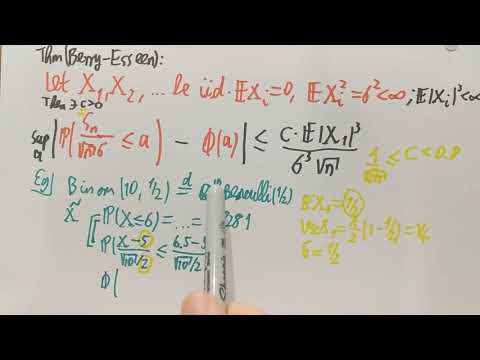 Thm (Berry-Esseen):
Let X₁, X₂, ... be iid. 𝔼Xᵢ=0, 𝔼Xᵢ²=6²<∞, 𝔼|Xᵢ|³<∞
Then ∃ c>0
sup a |ℙ(Sₙ/√n6 ≤ a) - Φ(a)| ≤ C·𝔼|X₁|³/6³√n
1/√(2π) ≤ C < 0.8
Eg) Binom(10, 1/2) =ᵈ Bernoulli(1/2)
X̃
ℙ(X≤6) = ... = 8281
ℙ(X-5/√10/2 ≤ 6.5-5/√10/2
Φ(
𝔼X₁ = 1/2
Var X₁ = 1/2(1-1/2) = 1/4
6 = 1/2